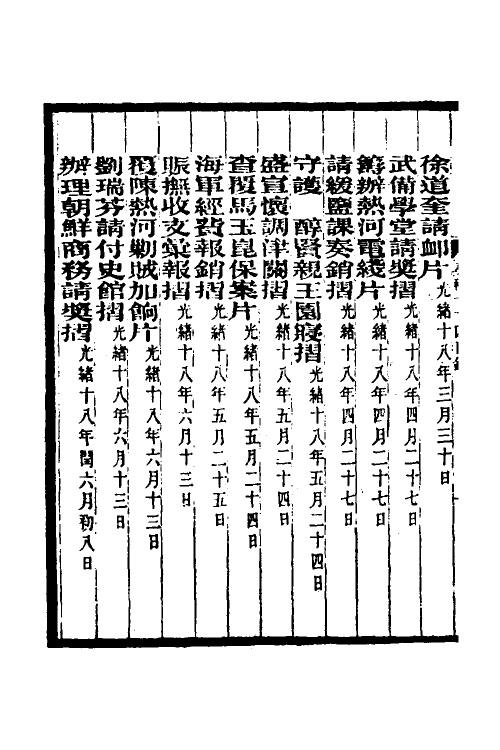 徐道奎請卹片光緒十八年三月三十日
武備學堂請奬摺光緒十八年四月二十七日
籌辦熱河電綫片光緒十八年四月二十七日
請緩鹽課奏銷摺光緒十八年四月二十七日
守護　醇賢親王園寢摺光緒十八年五月二十四日
盛宣懷調津關摺光緒十八年五月二十四日
查覆馬玉崑保案片光緒十八年五月二十四日
海軍經費報銷摺光緒十八年五月二十五日
賑撫收支彙報摺光緒十八年六月十三日
覆陳熱河勦賊加餉片光緒十八年六月十三日
劉瑞芬請付史館摺光緒十八年六月十三日
辦理朝鮮商務請奬摺光緒十八年閏六月初八日